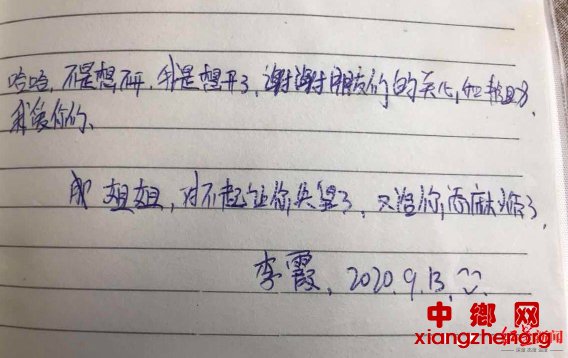 哈哈,不是想不开,我是想开了,谢谢朋友们的关心,和帮助,
我爱你们、
成姐姐,对不起让你失望了,又给你添麻烦了,
李霞、2020.9.13.
中鄉网
xiangzheng.org
红星新闻